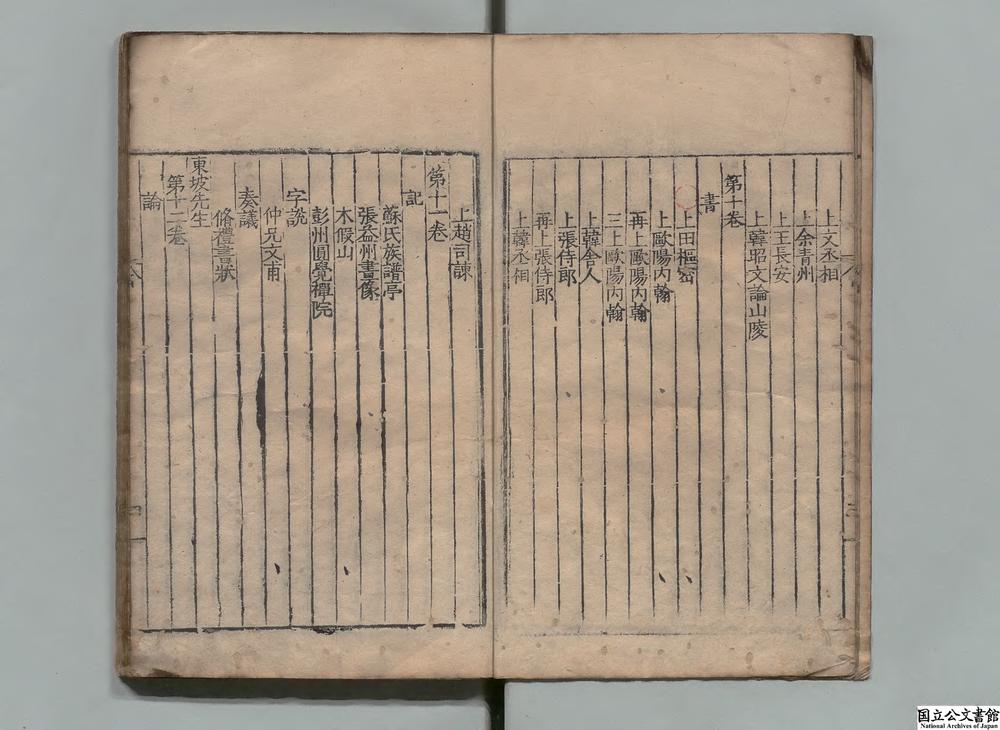 上文丞相
上余青州
上王長安
上韓昭文論山陵
第十卷
書
上田樞密
上歐陽內翰
再上歐陽內翰
三上歐陽內翰
上韓舍人
上張侍郎
再上張侍郎
上韓丞相
上趙司諫
第十一卷
記
蘇氏族譜亭
張益州畫像
木假山
彭州圓覺禪院
字說
仲兄文甫
奏議
脩禮書狀
東坡先生
第十二卷
論
国立公文書館
National Archives of Japan